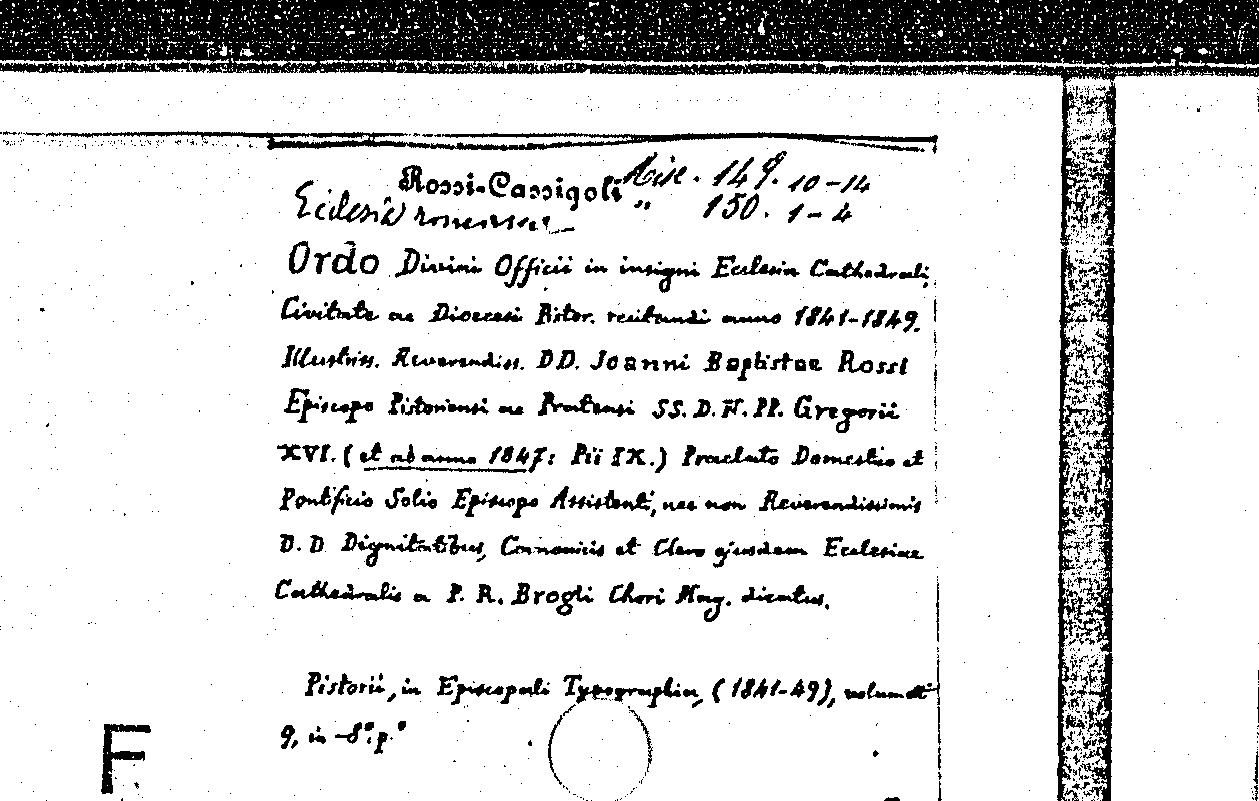 Rossi-Cassigoli Misc. 149. 10-14
Ecclesia " 150. 1-4
Ordo Divini Officii in insigni Ecclesia Cathedrali,
Civitate ac Dioecesi Pistor. recitandi anno 1841-1849.
Illustriss. Reverendiss. DD. Joanni Baptistae Rossi
Episcopo Pistoriensi ac Pratensi SS. D. N. PP. Gregorii
XVI. (et ab anno 1847: Pii IX.) Praelato Domestico et
Pontificio Solio Episcopo Assistenti, nec non Reverendissimis
D. D. Dignitatibus, Canonicis et Clero ejusdem Ecclesiae
Cathedralis a P. R. Brogli Chori Mag. dicatus.
Pistorii, in Episcopali Typographia, (1841-49), volumetti
9, in -8°. p.°
F